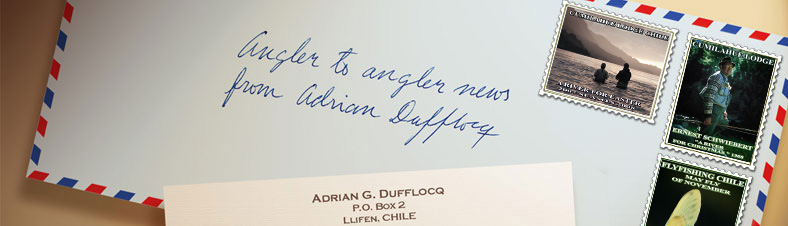 Angler to angler news
from Adrian Dufflocq
CUMILAHUE LODGE CHILE
A RIVER FOR EASTER
CUMILAHUE LODGE
ERNEST SCHWIEBERT
"A RIVER
FOR CHRISTMAS" 1989
FLYFISHING CHILE
MAY FLY
OF NOVEMBER
ADRIAN G. DUFFLOCQ
P.O. BOX 2
LLIFEN, CHILE